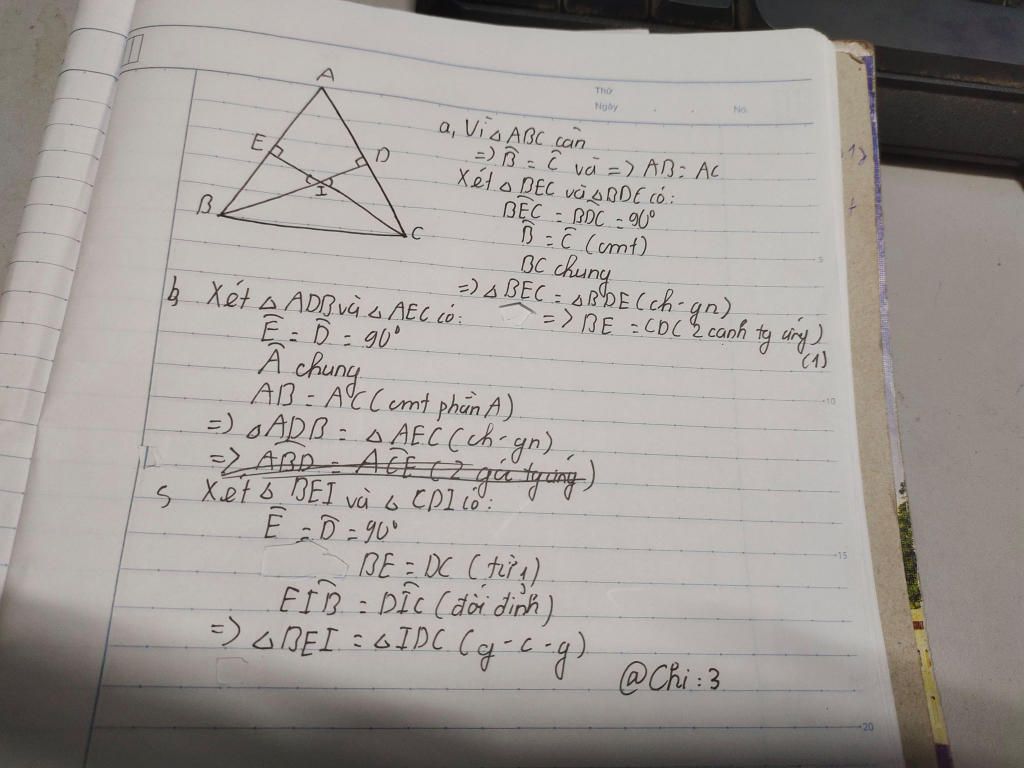 Thứ
Ngày
No.
A
E
D
I
B
C
a, Vì △ABC cân
=> B̂ = Ĉ và => AB = AC
Xét △BEC và △BDC có:
BÊC = BD̂C = 90°
B̂ = Ĉ (cmt)
BC chung
=> △BEC = △BDE (ch-gn)
=> BE = CD (2 cạnh tg ứng)
(1)
b, Xét △ADB và △AEC có:
Ê = D̂ = 90°
Â chung
AB = AC (cmt phần A)
=> △ADB = △AEC (ch-gn)
=> AB̂D = AĈE (2 góc tg ứng)
c, Xét △BEI và △CDI có:
Ê = D̂ = 90°
BE = DC (từ 1)
EÎB = DÎC (đối đỉnh)
=> △BEI = △IDC (g-c-g)
@Chi:3
5
10
15
20